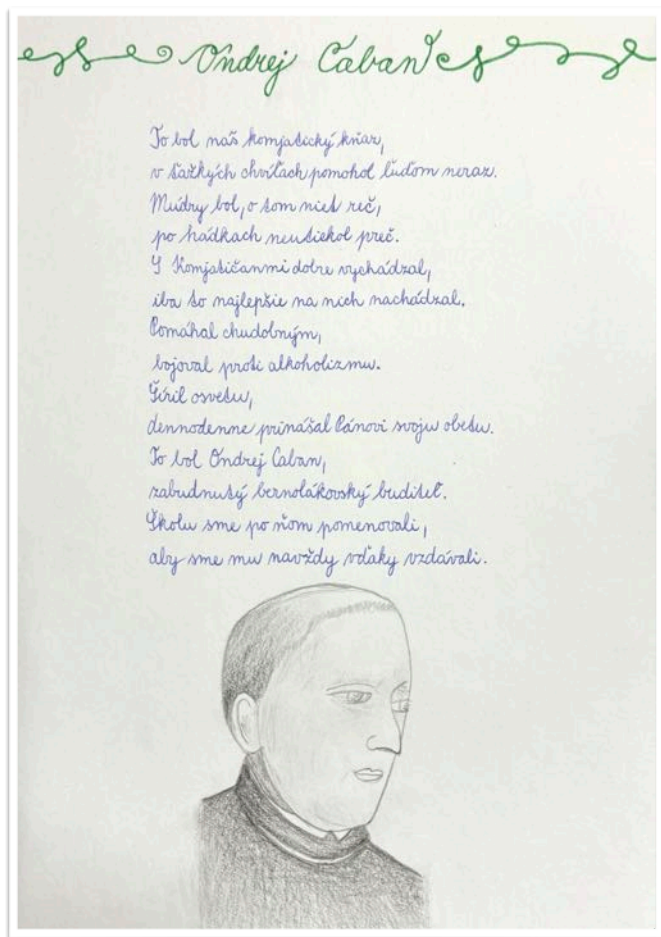 Ondrej Caban
To bol náš komjatický kňaz,
v ťažkých chvíľach pomohol ľuďom neraz.
Múdry bol, o tom niet reč,
po hádkach neutiekol preč.
S Komjatičanmi dobre vychádzal,
iba to najlepšie na nich nachádzal.
Pomáhal chudobným,
bojoval proti alkoholizmu.
Šíril osvetu,
dennodenne prinášal Pánovi svoju obetu.
To bol Ondrej Caban,
zabudnutý bernolákovský buditeľ.
Školu sme po ňom pomenovali,
aby sme mu navždy vďaky vzdávali.